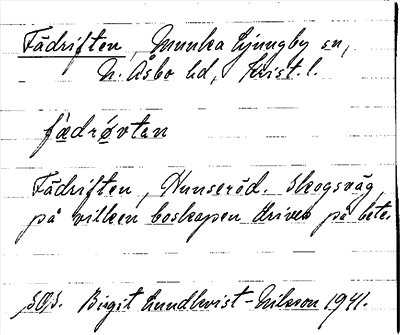 Fädriften, Munka Ljungby sn,
N. Åsbo hd, Krist. l.
fædrøvten
Fädriften, Hunseröd. Skogsväg
på vilken boskapen drives på bete.
SOS. Birgit Lundkvist-Nilsson 1941.